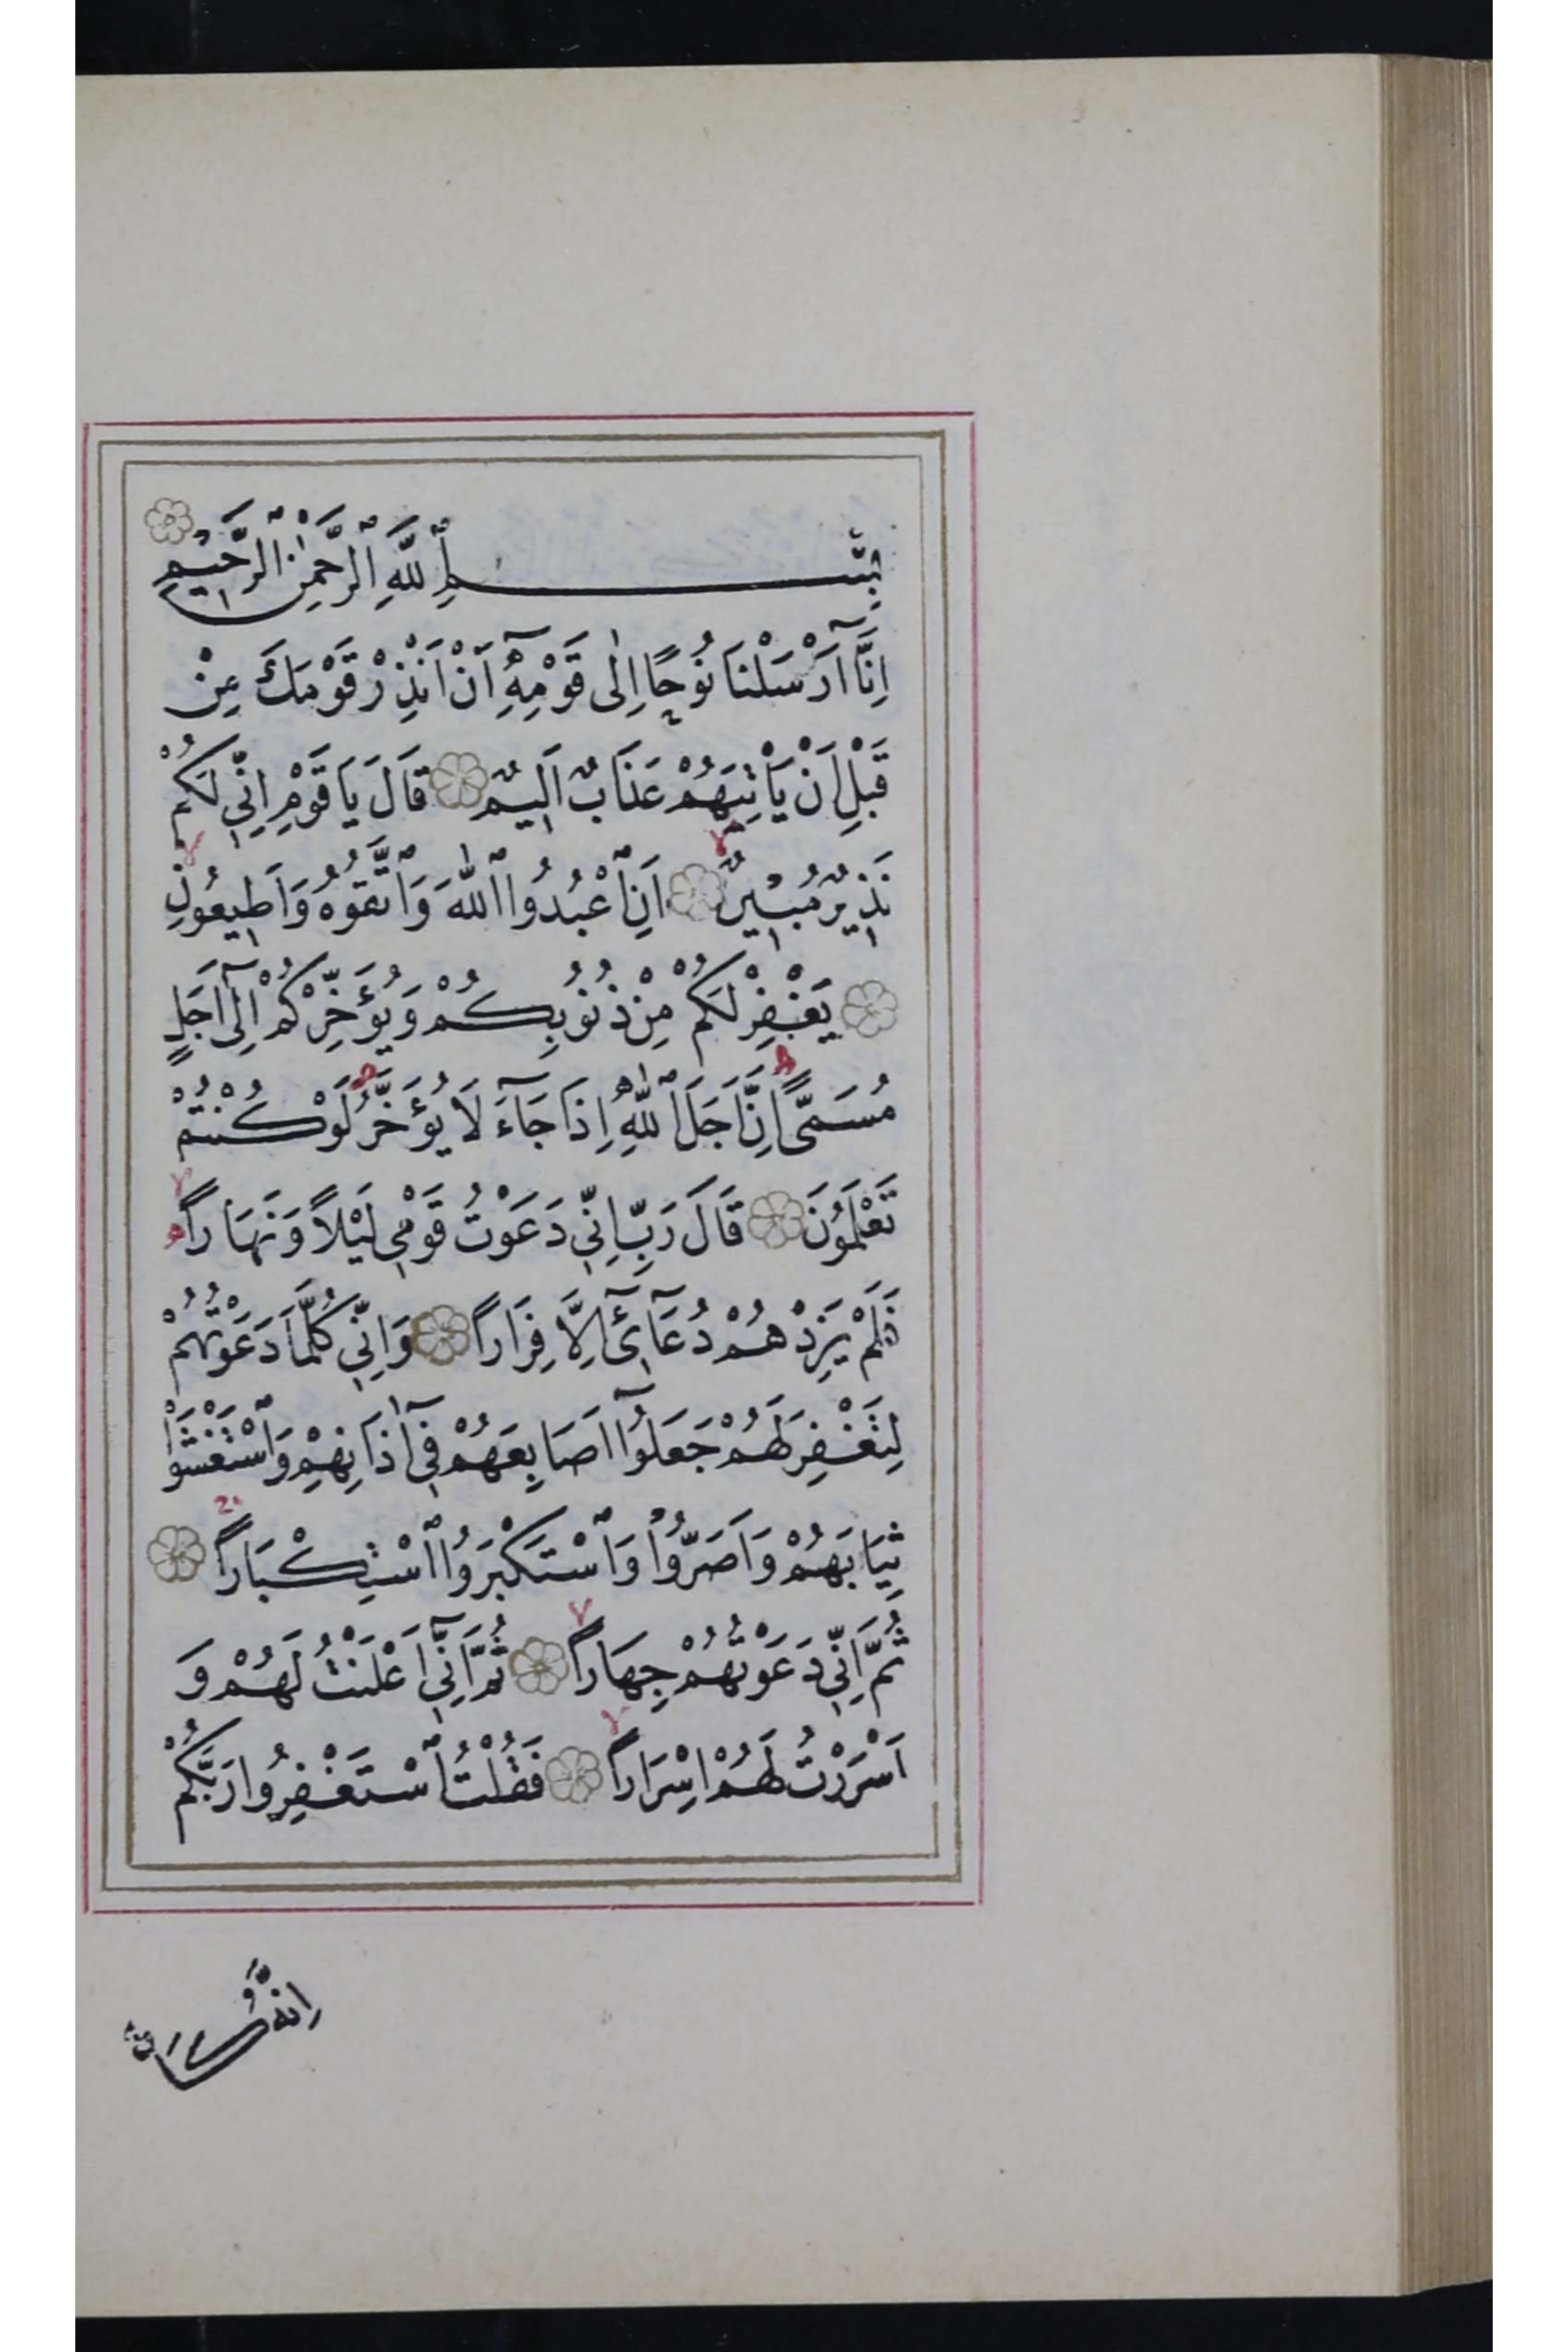 بِسْمِ ٱللّٰهِ ٱلرَّحْمٰنِ ٱلرَّحِيمِ
اِنَّٓا اَرْسَلْنَا نُوحًا اِلٰى قَوْمِهٖٓ اَنْ اَنْذِرْ قَوْمَكَ مِنْ
قَبْلِ اَنْ يَأْتِيَهُمْ عَذَابٌ اَلِيمٌ قَالَ يَا قَوْمِ اِنِّي لَكُمْ
نَذِيرٌ مُبِينٌ اَنِ ٱعْبُدُوا ٱللّٰهَ وَٱتَّقُوهُ وَاَطِيعُونِ
يَغْفِرْ لَكُمْ مِنْ ذُنُوبِكُمْ وَيُؤَخِّرْكُمْ اِلٰٓى اَجَلٍ
مُسَمًّى اِنَّ اَجَلَ ٱللّٰهِ اِذَا جَٓاءَ لَا يُؤَخَّرُ لَوْ كُنْتُمْ
تَعْلَمُونَ قَالَ رَبِّ اِنِّي دَعَوْتُ قَوْمِي لَيْلاً وَنَهَاراً
فَلَمْ يَزِدْهُمْ دُعَٓائِٓي اِلَّا فِرَاراً وَاِنِّي كُلَّمَا دَعَوْتُهُمْ
لِتَغْفِرَ لَهُمْ جَعَلُٓوا اَصَابِعَهُمْ فِٓي اٰذَانِهِمْ وَٱسْتَغْشَوْا
ثِيَابَهُمْ وَاَصَرُّوا وَٱسْتَكْبَرُوا ٱسْتِكْبَاراً
ثُمَّ اِنِّي دَعَوْتُهُمْ جِهَاراً ثُمَّ اِنِّٓي اَعْلَنْتُ لَهُمْ وَ
اَسْرَرْتُ لَهُمْ اِسْرَاراً فَقُلْتُ ٱسْتَغْفِرُوا رَبَّكُمْ
اِنَّهُ كَانَ